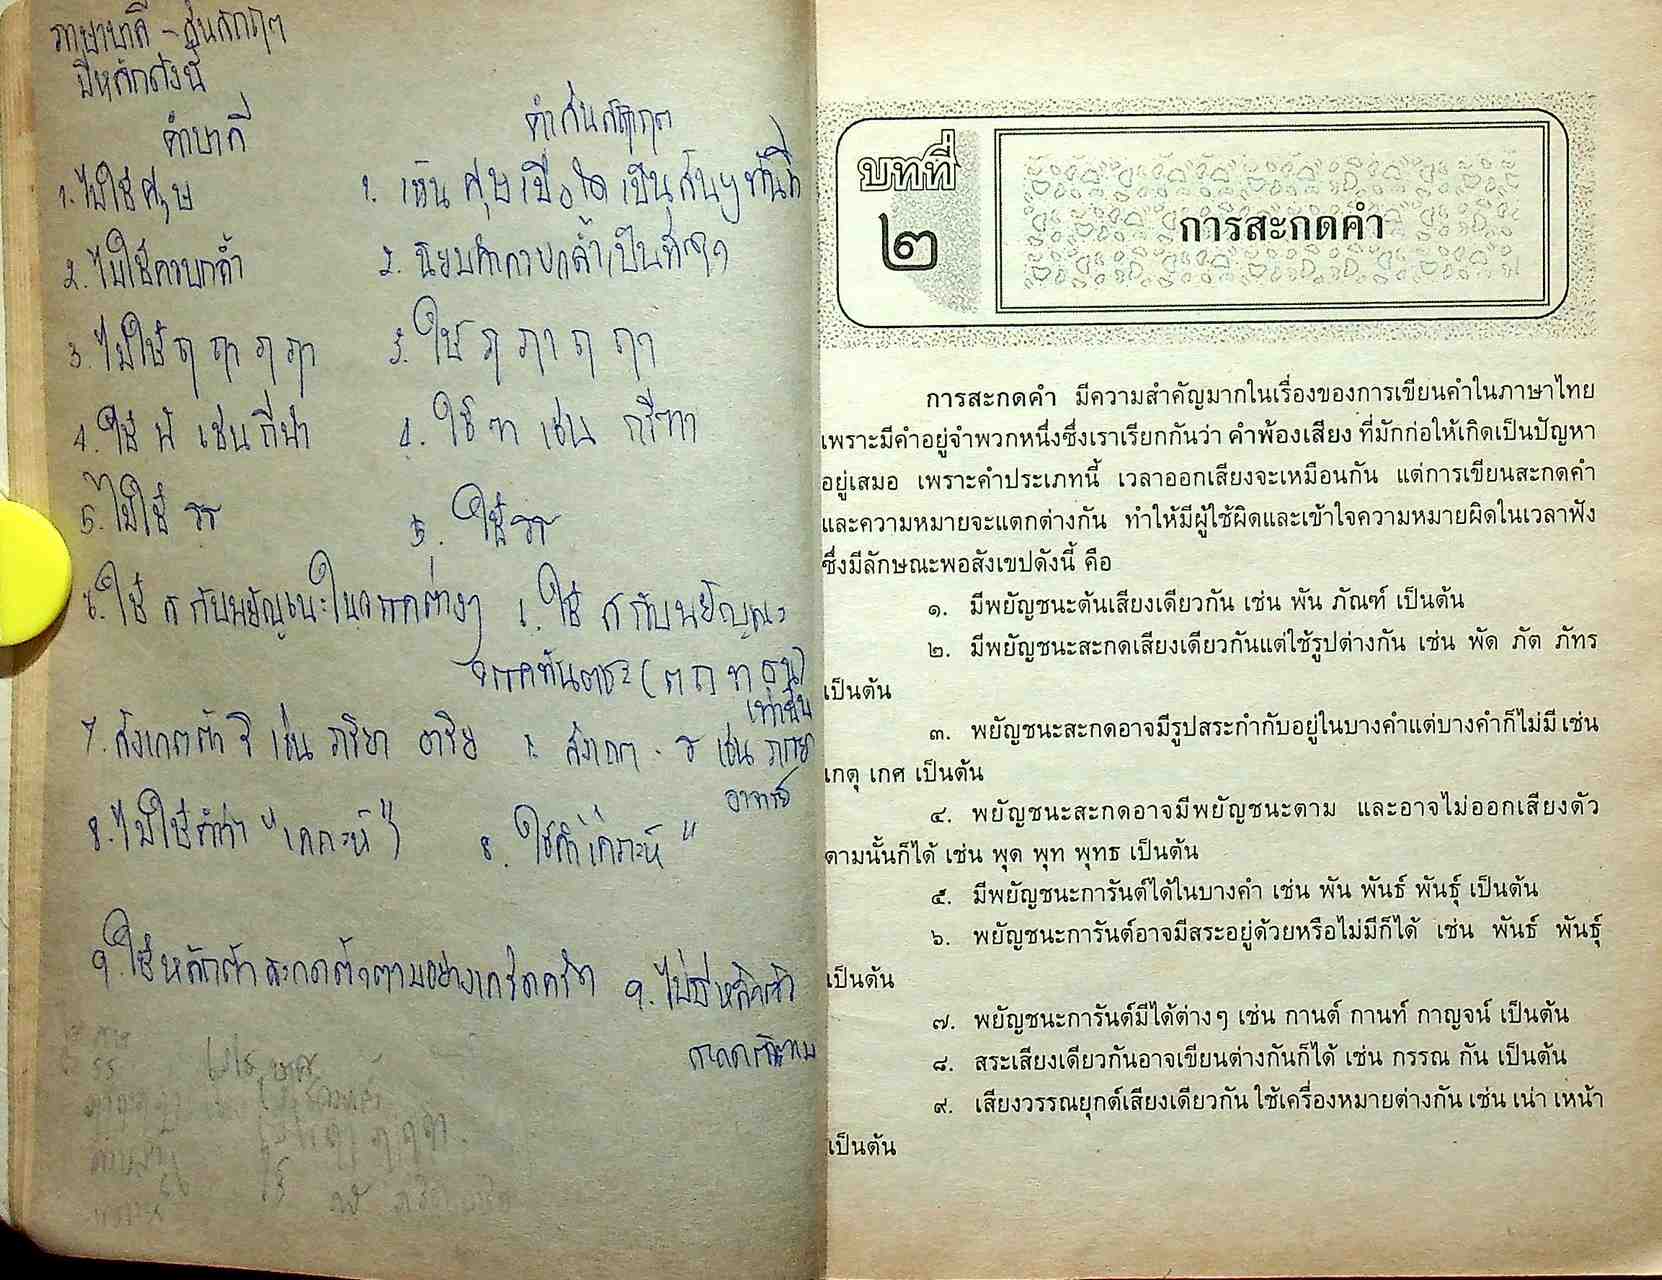 ภาษาบาลี - สันสกฤต
มีหลักดังนี้
คำบาลี
คำสันสกฤต
1. ไม่ใช้ ศ, ษ
1. เห็น ศ ษ เมื่อใด เป็นสันฯ ทันที
2. ไม่ใช้ควบกล้ำ
2. นิยมคำควบกล้ำเป็น
3. ไม่ใช้ ฤ ฤา ฦ ฦา
3. ใช้ ฦ ฦา ฤ ฤา
4. ใช้ ฬ เช่น กีฬา
4. ใช้ ฑ เช่น กรีฑา
5. ไม่ใช้ รร
5. ใช้ รร
6. ใช้ ส กับพยัญชนะในวรรคต่างๆ
6. ใช้ ส กับพยัญชนะ
วรรคทันตชะ (ต ถ ท ธ น)
เท่านั้น
7. สังเกตคำ ริ เช่น ภริยา อาริย
7. สังเกต - ร เช่น ภรรยา
อาจารย์
8. ไม่ใช้คำว่า "เคาะห์"
8. ใช้คำ "เคราะห์"
9. ใช้หลักตัวสะกดตัวตามอย่างเคร่งครัด
9. ไม่มีหลักตัว
สะกดตัวตาม
บทที่
๒
การสะกดคำ
การสะกดคำ มีความสำคัญมากในเรื่องของการเขียนคำในภาษาไทย
เพราะมีคำอยู่จำพวกหนึ่งซึ่งเราเรียกกันว่า คำพ้องเสียง ที่มักก่อให้เกิดเป็นปัญหา
อยู่เสมอ เพราะคำประเภทนี้ เวลาออกเสียงจะเหมือนกัน แต่การเขียนสะกดคำ
และความหมายจะแตกต่างกัน ทำให้มีผู้ใช้ผิดและเข้าใจความหมายผิดในเวลาฟัง
ซึ่งมีลักษณะพอสังเขปดังนี้ คือ
๑. มีพยัญชนะต้นเสียงเดียวกัน เช่น พัน ภัณฑ์ เป็นต้น
๒. มีพยัญชนะสะกดเสียงเดียวกันแต่ใช้รูปต่างกัน เช่น พัด ภัต ภัทร
เป็นต้น
๓. พยัญชนะสะกดอาจมีรูปสระกำกับอยู่ในบางคำแต่บางคำก็ไม่มี เช่น
เกตุ เกศ เป็นต้น
๔. พยัญชนะสะกดอาจมีพยัญชนะตาม และอาจไม่ออกเสียงตัว
ตามนั้นก็ได้ เช่น พุด พุท พุทธ เป็นต้น
๕. มีพยัญชนะการันต์ได้ในบางคำ เช่น พัน พันธ์ พันธุ์ เป็นต้น
๖. พยัญชนะการันต์อาจมีสระอยู่ด้วยหรือไม่มีก็ได้ เช่น พันธ์ พันธุ์
เป็นต้น
๗. พยัญชนะการันต์มีได้ต่างๆ เช่น กานต์ กานท์ กาญจน์ เป็นต้น
๘. สระเสียงเดียวกันอาจเขียนต่างกันก็ได้ เช่น กรรณ กัน เป็นต้น
๙. เสียงวรรณยุกต์เสียงเดียวกัน ใช้เครื่องหมายต่างกัน เช่น เน่า เหน้า
เป็นต้น